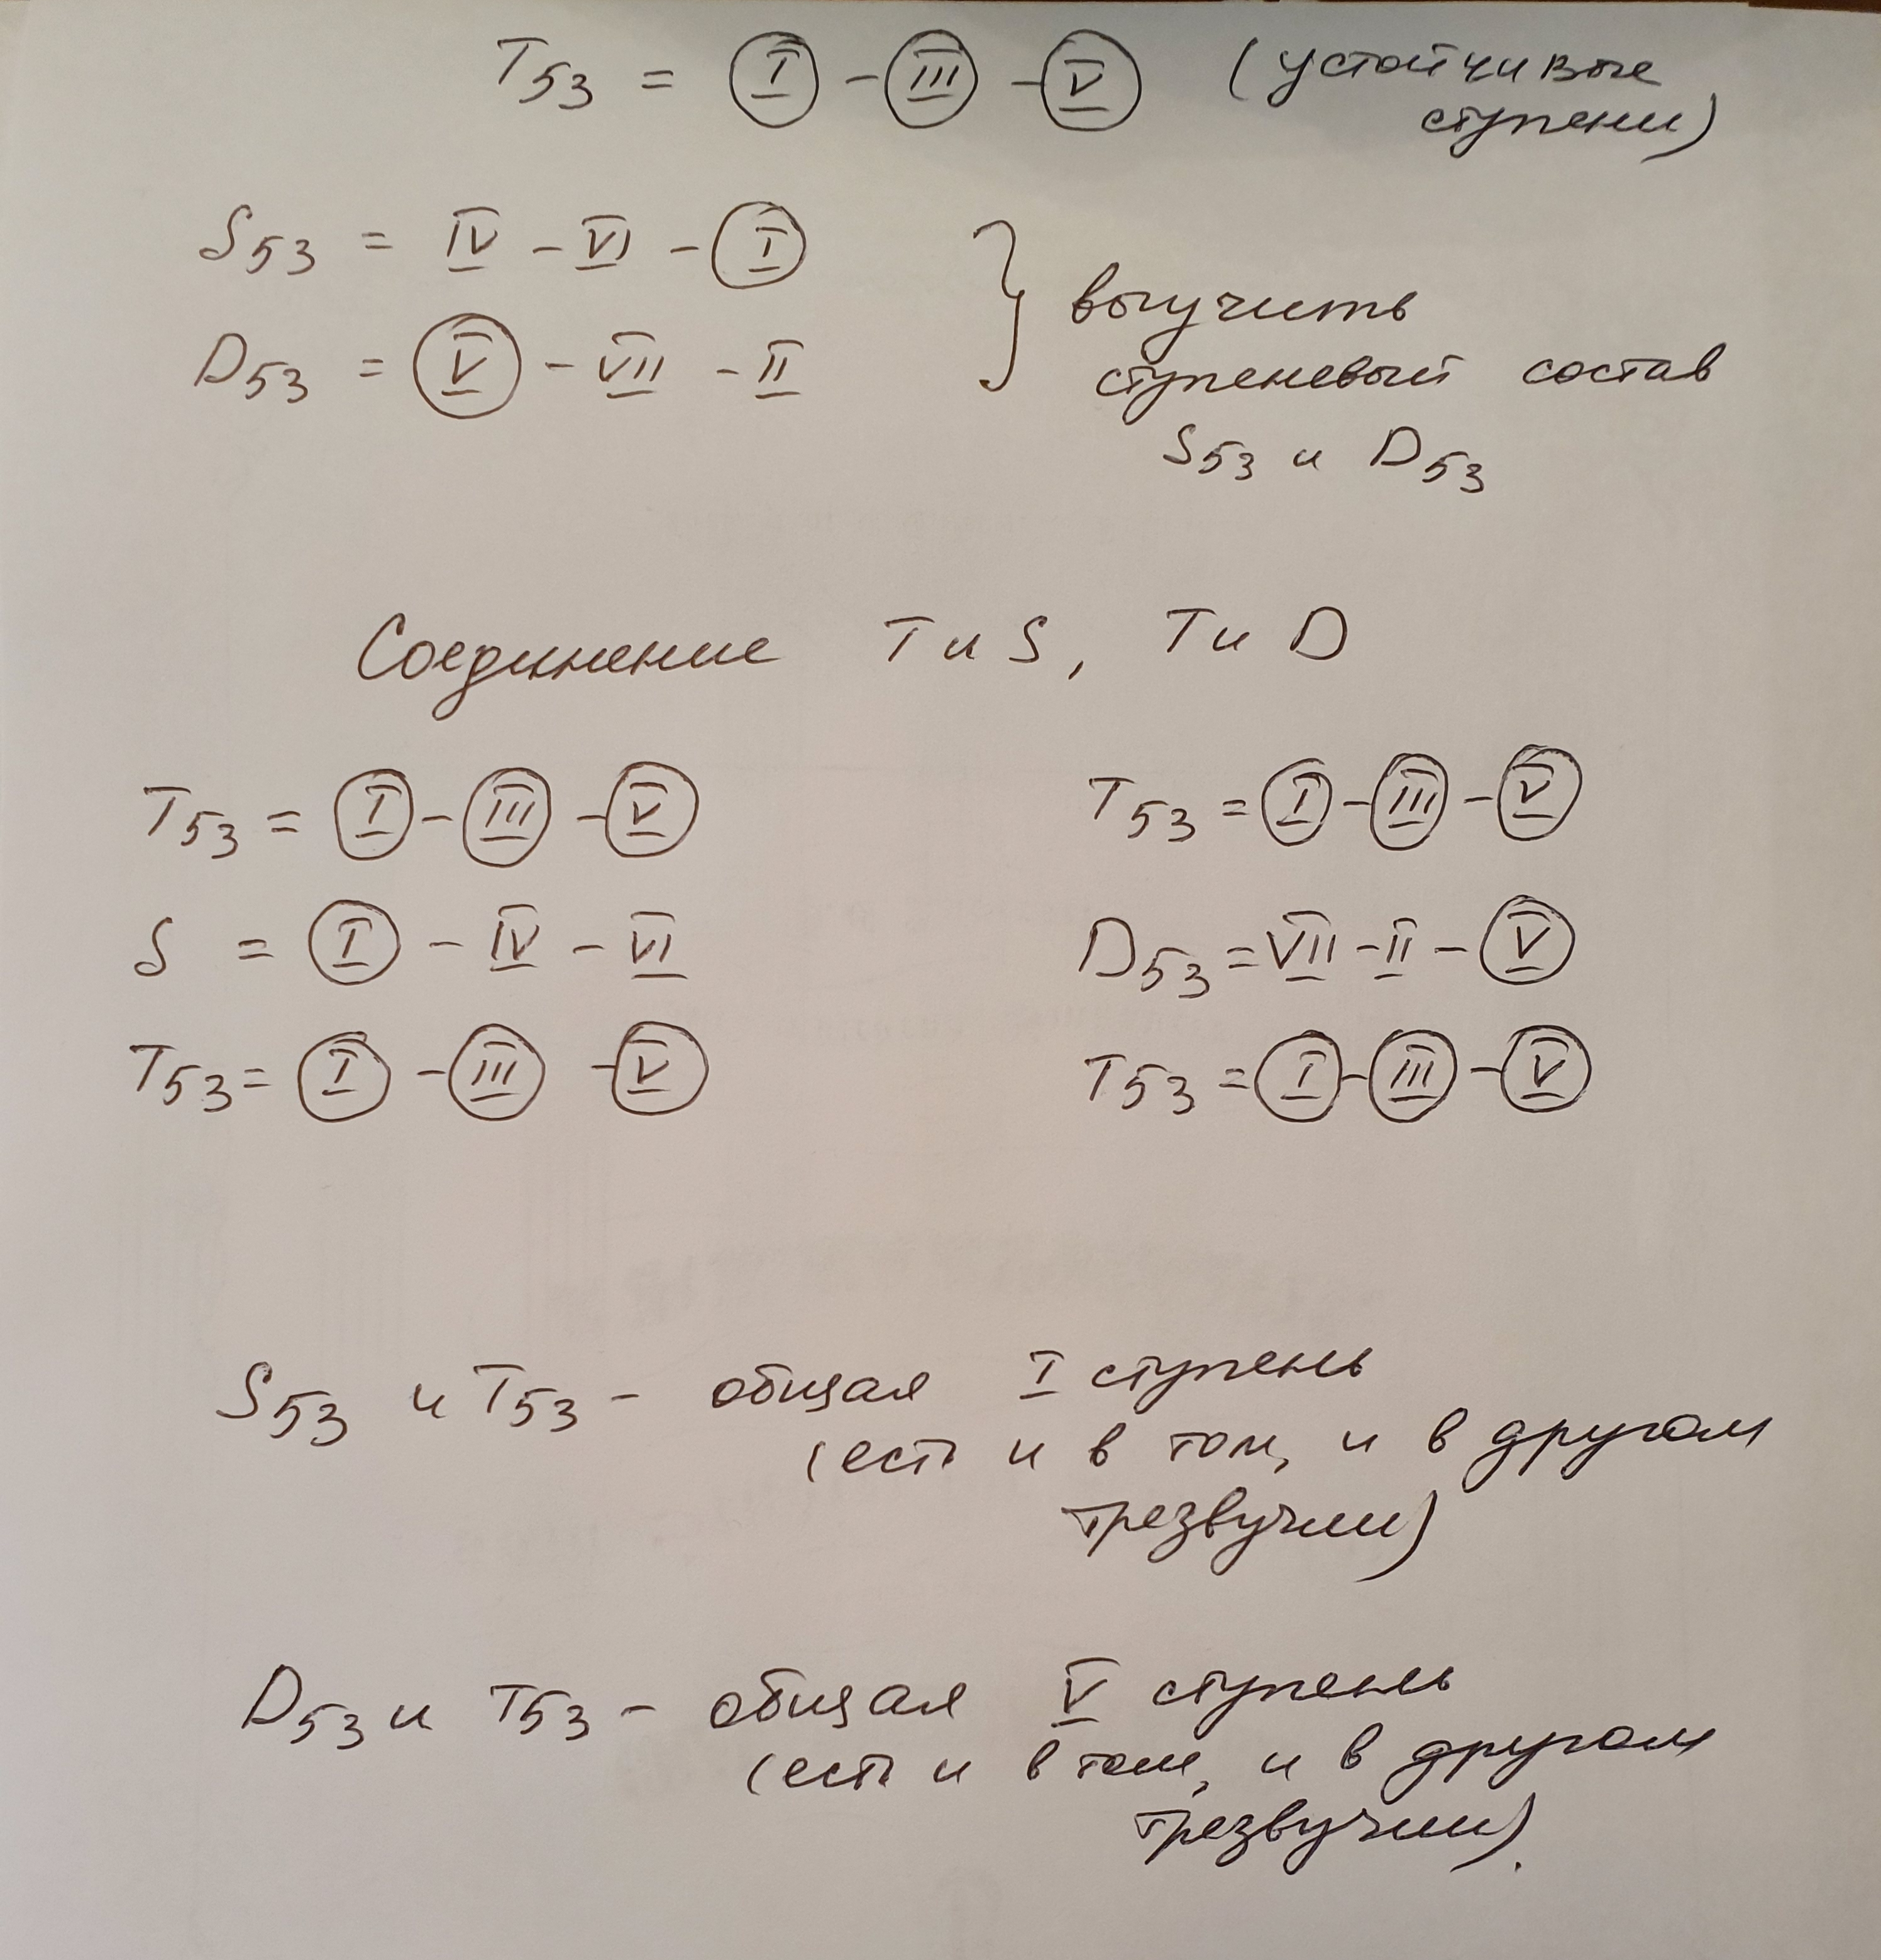 T53 = I - III - V (устойчивые
ступени)
S53 = IV - VI - I
D53 = V - VII - II
выучить
ступеневый состав
S53 и D53
Соединение T и S, T и D
T53 = I - III - V
S = I - IV - VI
T53 = I - III - V
T53 = I - III - V
D53 = VII - II - V
T53 = I - III - V
S53 и T53 - общая I ступень
(есть и в том, и в другом
трезвучии)
D53 и T53 - общая V ступень
(есть и в том, и в другом
трезвучии).